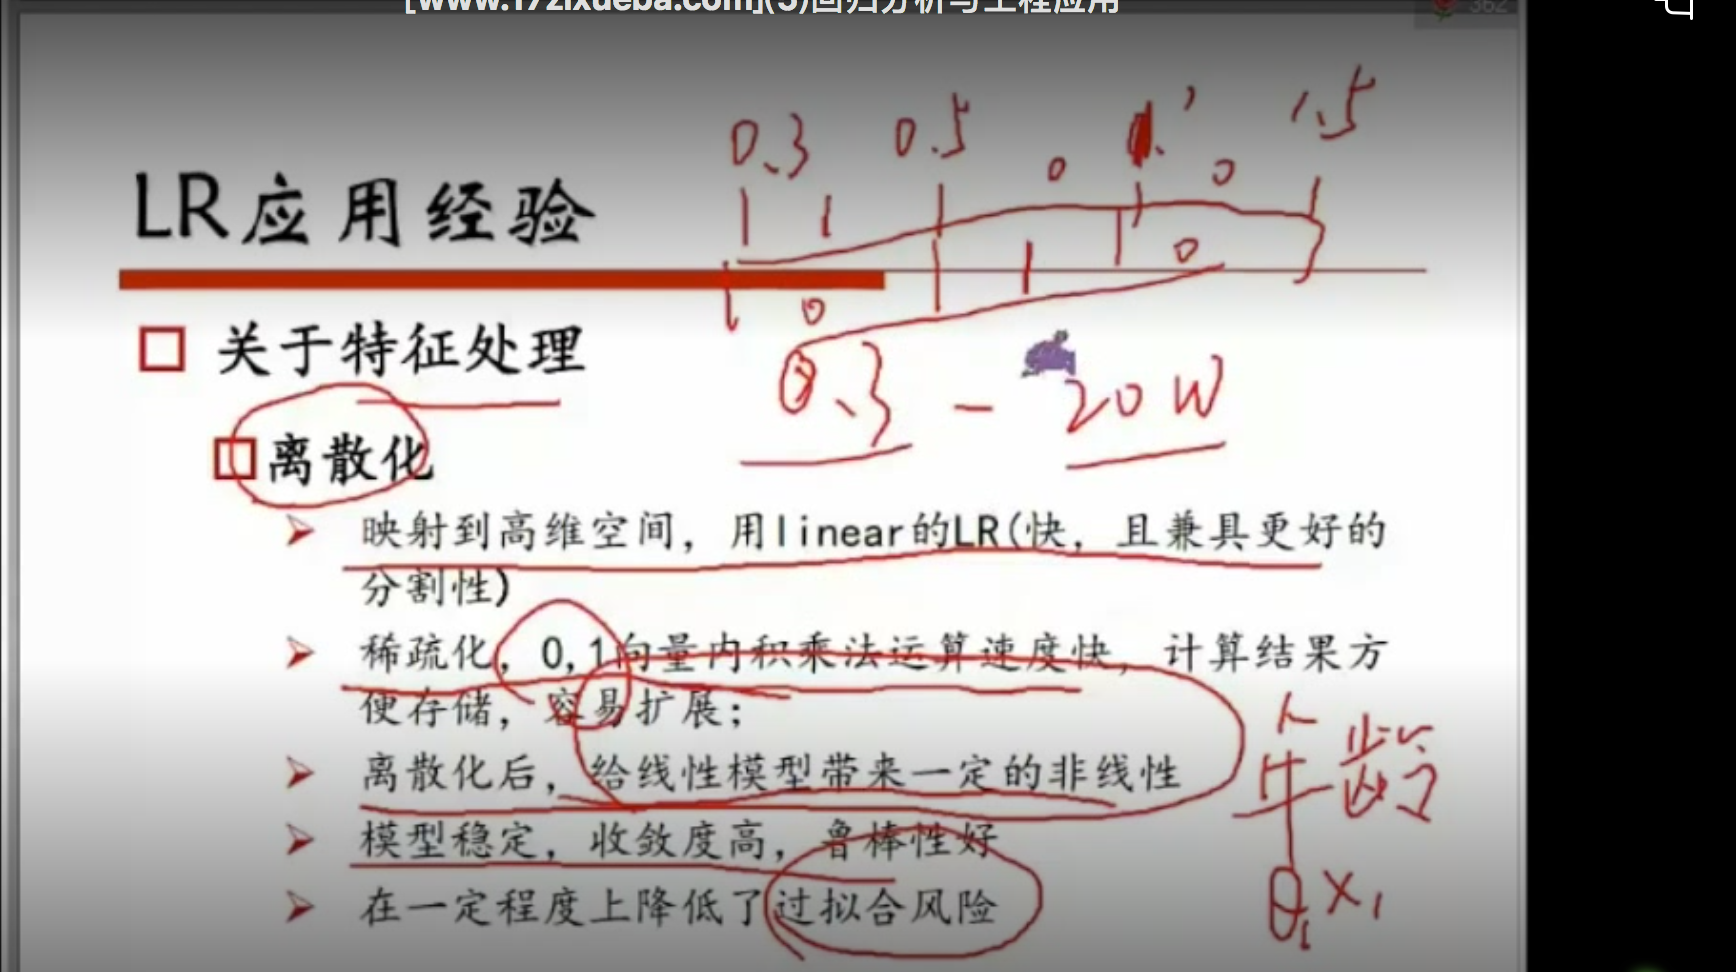 [www.17zixueba.com](5)回归分析与工程应用
362
0.3 0.5 1.5
1 0 0
LR应用经验
0 1 0
关于特征处理
0.3 - 20W
离散化
映射到高维空间，用linear的LR(快，且兼具更好的
分割性)
稀疏化，0,1向量内积乘法运算速度快，计算结果方
便存储，容易扩展；
离散化后，给线性模型带来一定的非线性
模型稳定，收敛度高，鲁棒性好
年龄
在一定程度上降低了过拟合风险
θ₁x₁